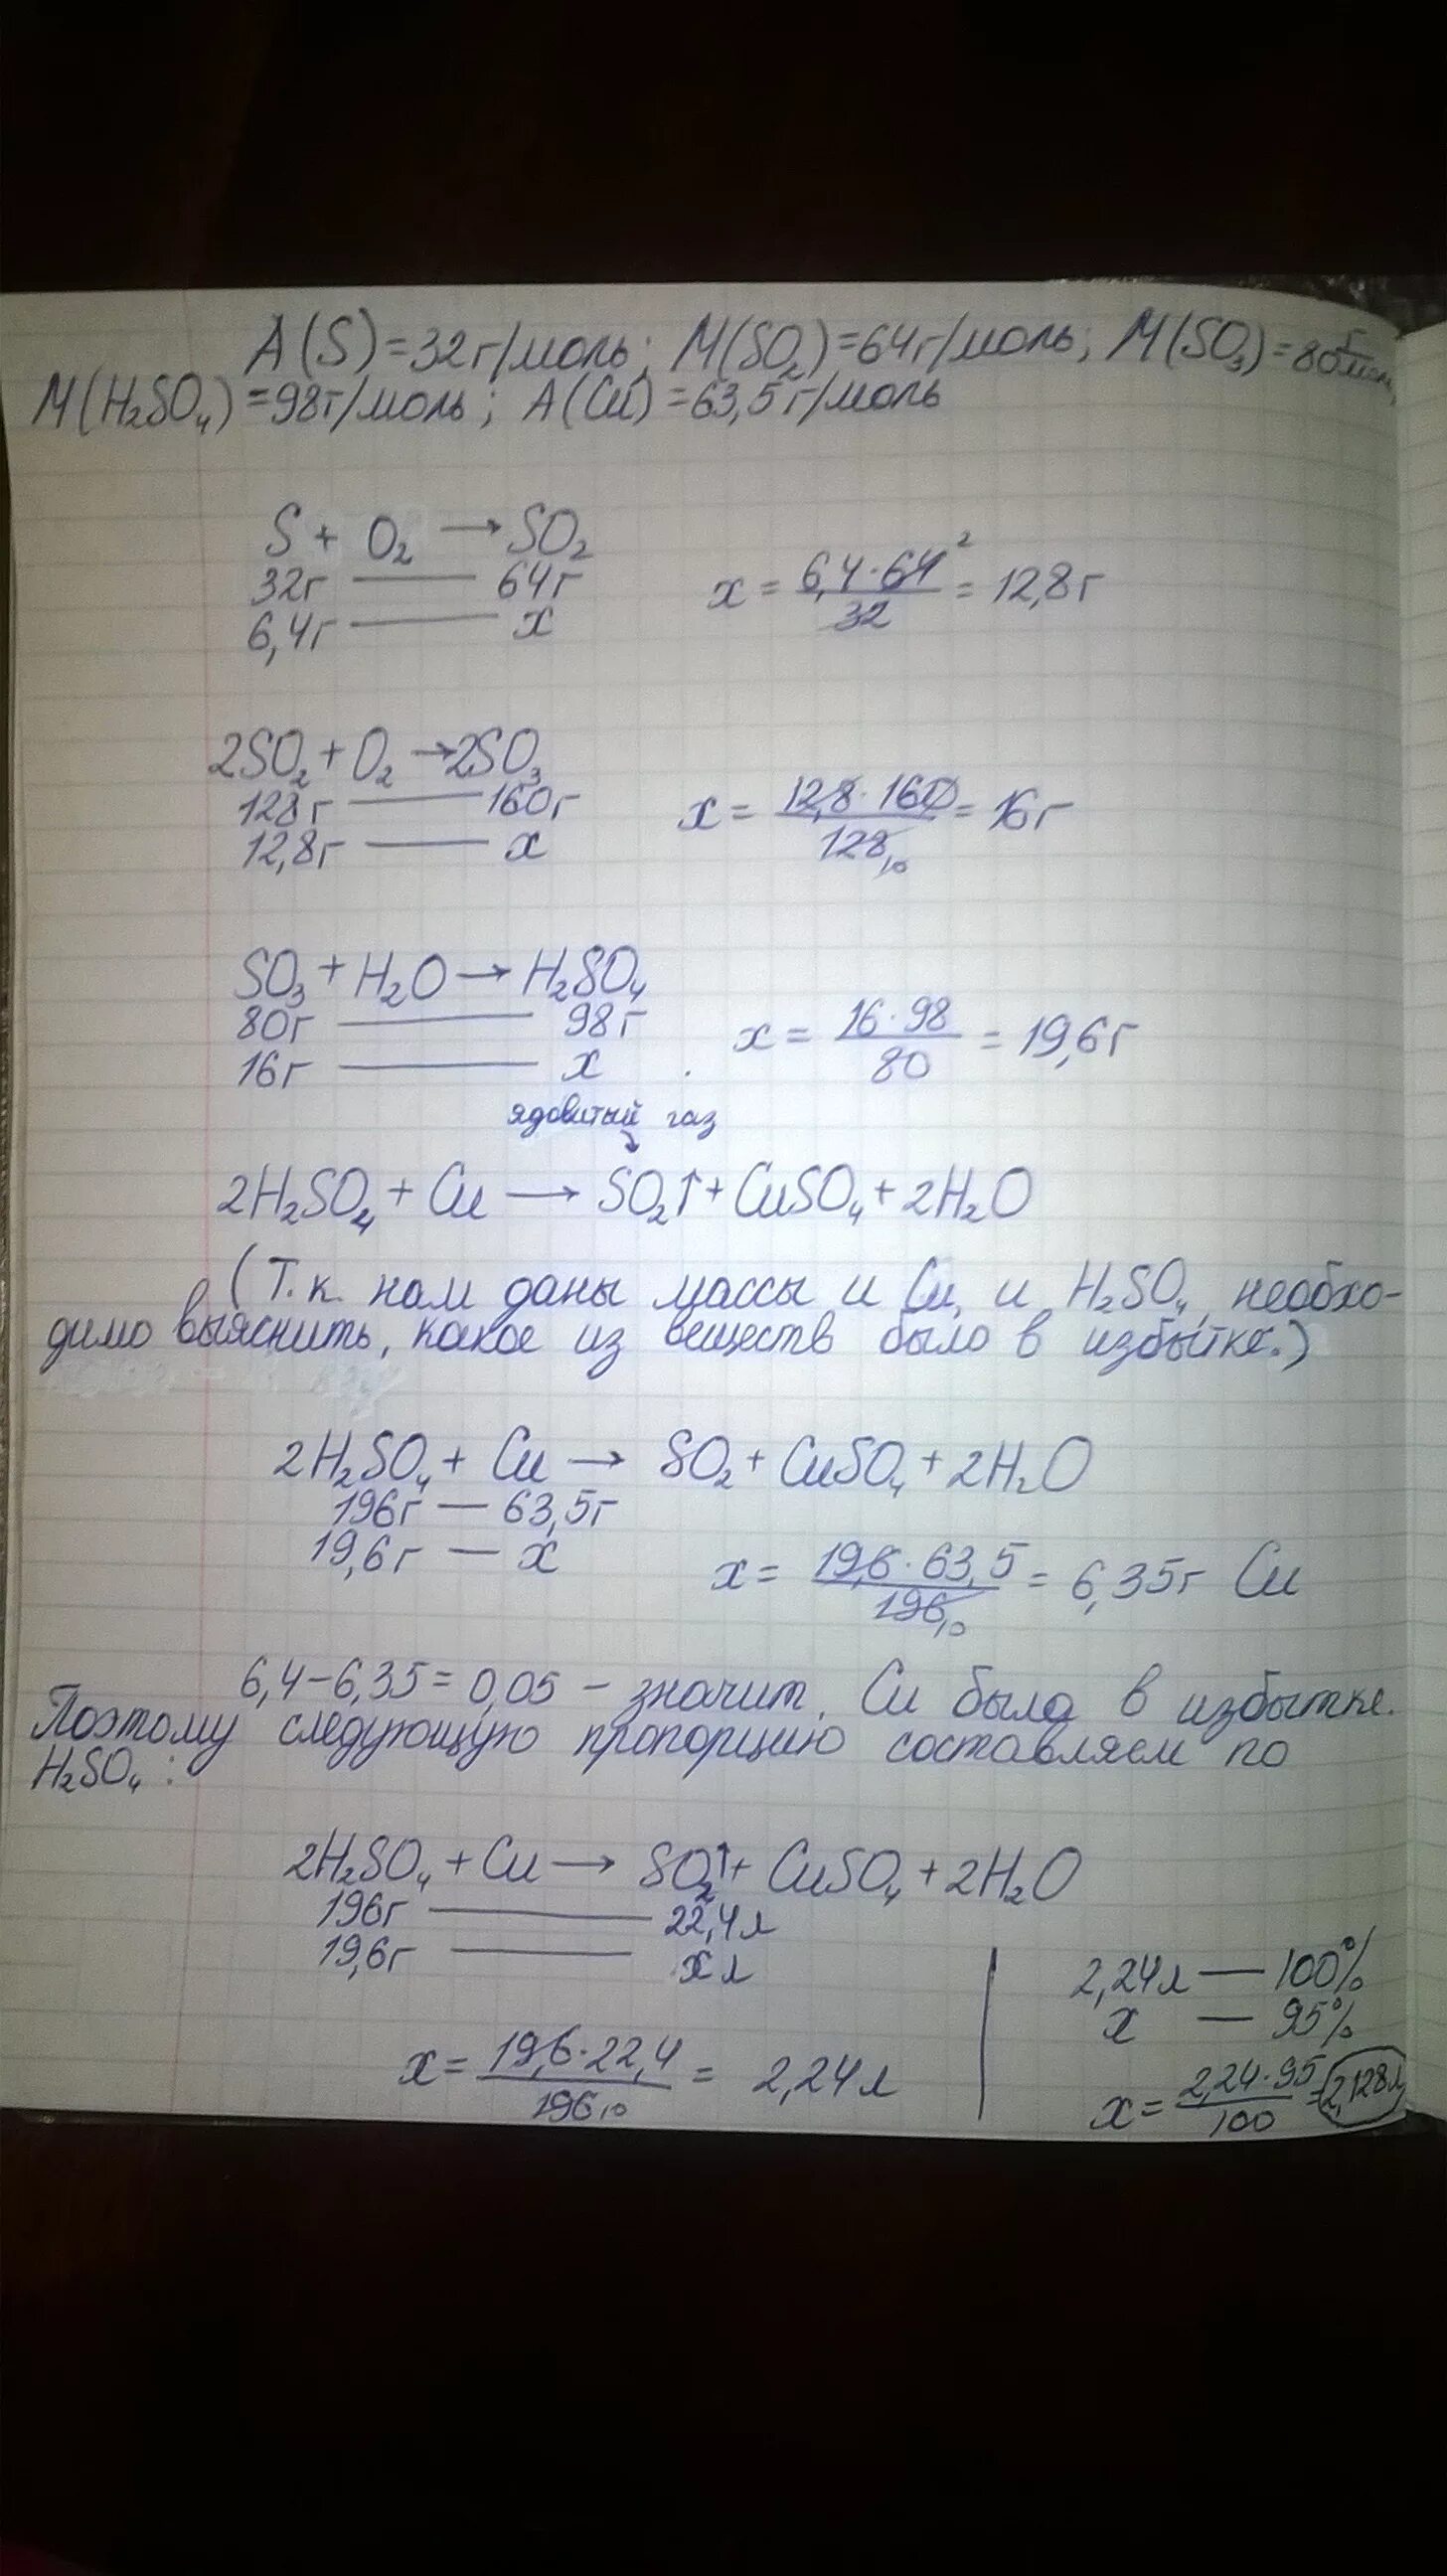 A(S)=32г/моль; M(SO₂)=64г/моль; M(SO₃)=80
M(H₂SO₄)=98г/моль; A(Cu)=63,5г/моль
S + O₂ → SO₂
32г — 64г
6,4г — x
x = 6,4·64 ² / 32 = 12,8г
2SO₂ + O₂ → 2SO₃
128г — 160г
12,8г — x
x = 12,8·160 / 128,₁₀ = 16г
SO₃ + H₂O → H₂SO₄
80г — 98г
16г — x
x = 16·98 / 80 = 19,6г
ядовитый газ
2H₂SO₄ + Cu → SO₂↑ + CuSO₄ + 2H₂O
(Т.к. нам даны массы и Cu, и H₂SO₄, необхо-
димо выяснить, какое из веществ было в избытке.)
2H₂SO₄ + Cu → SO₂ + CuSO₄ + 2H₂O
196г — 63,5г
19,6г — x
x = 19,6·63,5 / 196,₁₀ = 6,35г Cu
6,4-6,35=0,05 - значит, Cu была в избытке.
Поэтому следующую пропорцию составляем по
H₂SO₄:
2H₂SO₄ + Cu → SO₂↑ + CuSO₄ + 2H₂O
196г — 22,4л
19,6г — x л
x = 19,6·22,4 / 196,₁₀ = 2,24л
2,24л — 100%
x — 95%
x = 2,24·95 / 100 = 2,128л